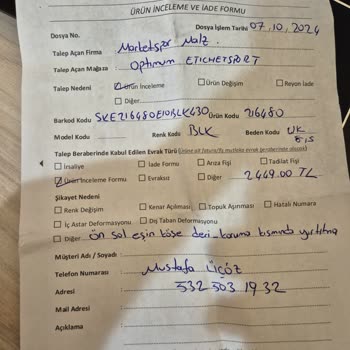 ÜRÜN İNCELEME VE İADE FORMU
Dosya No. Dosya İşlem Tarihi 07.10.2024
Talep Açan Firma Marketspor Malz.
Talep Açan Mağaza Optimum ETICHETSPORT
Talep Nedeni Ürün İnceleme Ürün Değişim Reyon İade
Diğer
Barkod Kodu SKE216480E10BLK430 Ürün Kodu 216480
Model Kodu Renk Kodu BLK Beden Kodu UK 8,5
Talep Beraberinde Kabul Edilen Evrak Türü
İrsaliye İade Formu Arıza Fişi Tadilat Fişi
Ürün İnceleme Formu Evraksız Diğer 2449.00 TL
Şikayet Nedeni
Renk Değişim Kenar Açılması Topuk Aşınması Hatalı Numara
İç Astar Deformasyonu Dış Taban Deformasyonu
Diğer Ön sol eşin köşe deri koruma kısmında yırtılma
Müşteri Adı / Soyadı
Telefon Numarası Mustafa ÜÇGÖZ
Adresi 532 503 19 32
Mail Adresi
Açıklama